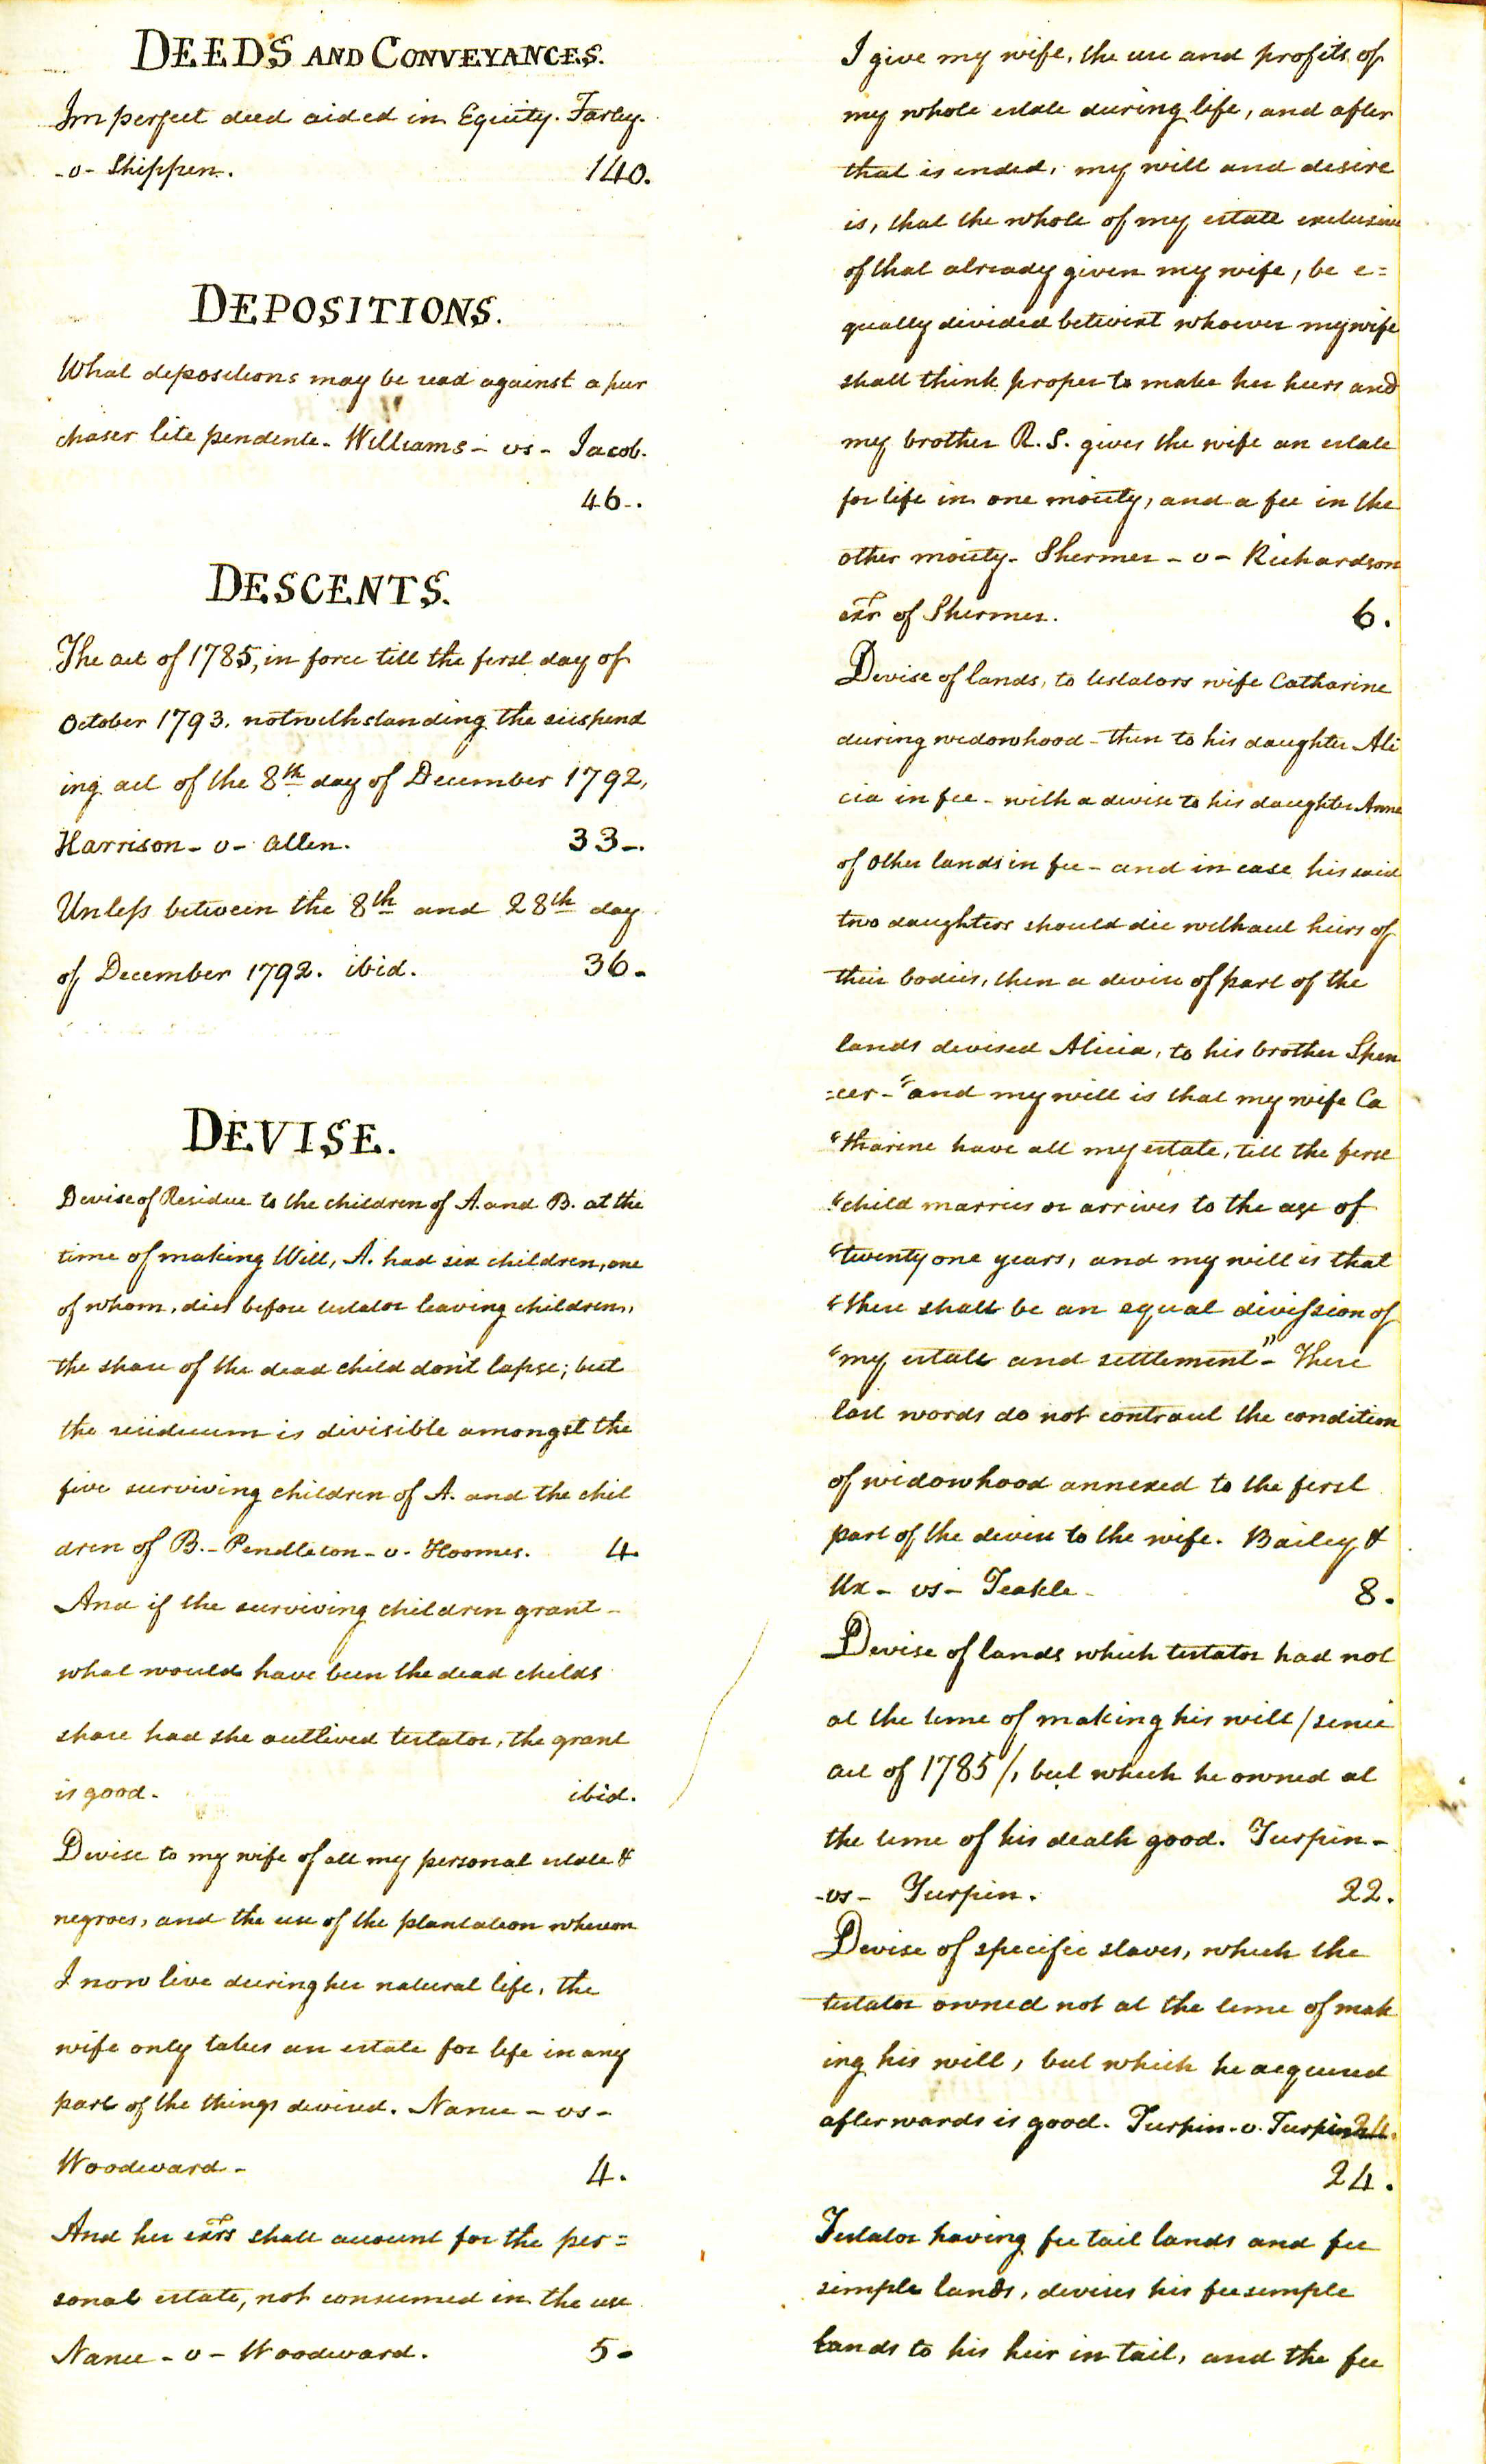 DEEDS AND CONVEYANCES.
Imperfect deed aided in Equity. Farley.
-v- Shippen. 140.
DEPOSITIONS.
What depositions may be read against a pur
chaser lite pendente. Williams - vs - Jacob.
46.
DESCENTS.
The act of 1785, in force till the first day of
October 1793. notwithstanding the suspend
ing act of the 8th day of December 1792,
Harrison - v - Allen. 33.
Unless between the 8th and 28th day
of December 1792. ibid. 36.
DEVISE.
Devise of Residue to the children of A. and B. at the
time of making Will, A. had six children, one
of whom, dies before testator leaving children,
the share of the dead child don't lapse; but
the residuum is divisible amongst the
five surviving children of A. and the chil
dren of B. - Pendleton - v. Hoomes. 4.
And if the surviving children grant -
what would have been the dead childs
share had she outlived testator, the grant
is good. ibid.
Devise to my wife of all my personal estate &
negroes, and the use of the plantation whereon
I now live during her natural life, the
wife only takes an estate for life in any
part of the things devised. Nance - vs -
Woodward - 4.
And her exrs shall account for the per=
sonal estate, not consumed in the use
Nance - v - Woodward. 5.
I give my wife, the use and profits of
my whole estate during life, and after
that is ended, my will and desire
is, that the whole of my estate exclusive
of that already given my wife, be e=
qually divided betwixt whoever my wife
shall think proper to make her heirs and
my brother R. S. gives the wife an estate
for life in one moiety, and a fee in the
other moiety - Shermer - v - Richardson
exr of Shermer. 6.
Devise of lands, to testators wife Catharine
during widowhood - then to his daughter Ali
cia in fee - with a devise to his daughter Anne
of other lands in fee - and in case his said
two daughters should die without heirs of
their bodies, then a devise of part of the
lands devised Alicia, to his brother Spen
=cer - "and my will is that my wife Ca
"tharine have all my estate, till the first
"child marries or arrives to the age of
"twenty one years, and my will is that
"there shall be an equal division of
"my estate and settlement" - These
last words do not contract the condition
of widowhood annexed to the first
part of the devise to the wife. Bailey &
Ux - vs - Teakle - 8.
Devise of lands which testator had not
at the time of making his will /since
act of 1785/, but which he owned at
the time of his death good. Turpin -
-vs - Turpin. 22.
Devise of specific slaves, which the
testator owned not at the time of mak
ing his will, but which he acquired
afterwards is good. Turpin - v. Turpin 24.
24.
Testator having fee tail lands and fee
simple lands, devises his fee simple
lands to his heir in tail, and the fee